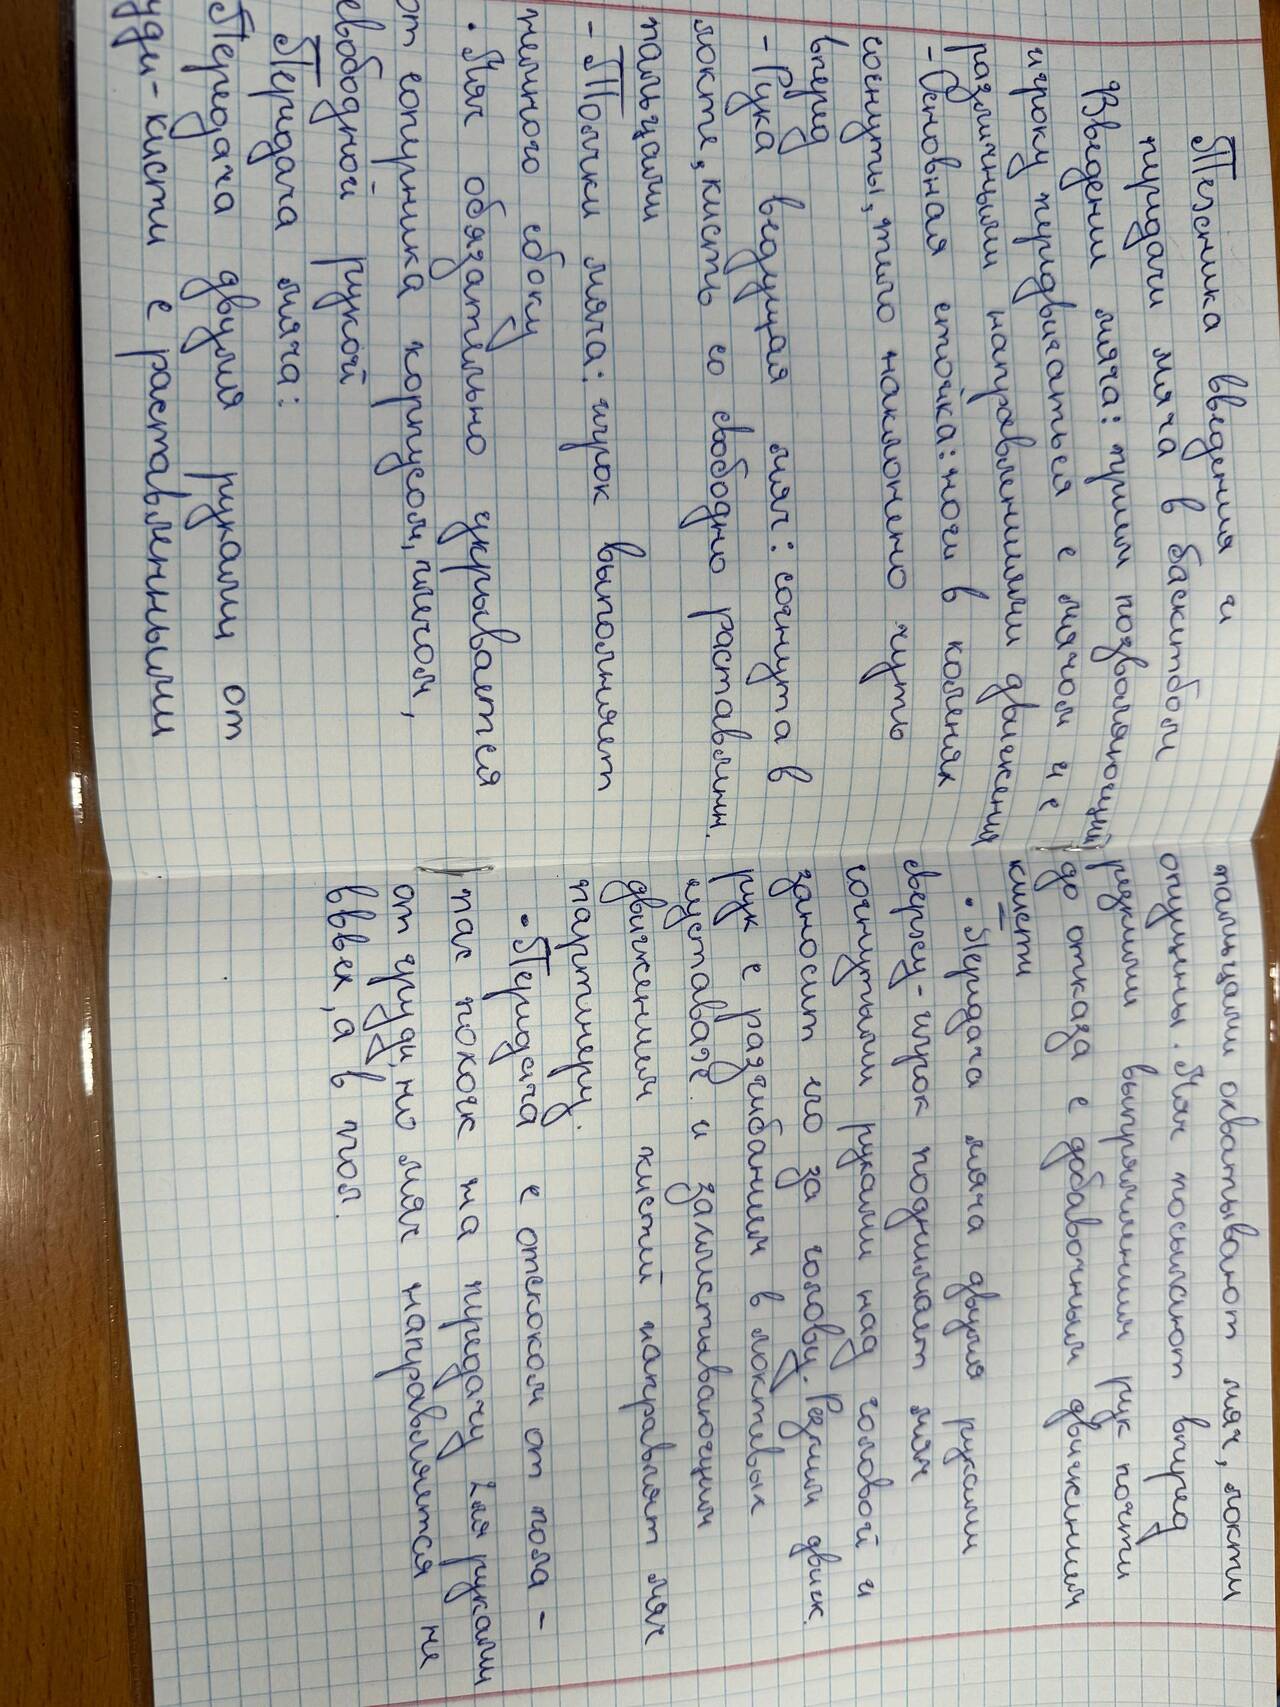 Техника введения и
передачи мяча в баскетболе
Введении мяча: прием позволяющий
игроку передвигаться с мячом и с
различными направлениями движения
- Основная стойка: ноги в коленях
согнуты, тело наклонено чуть
вперед
- Рука ведущая мяч: согнута в
локте, кисть со свободно раставленн.
пальцами
- Толчки мяча: игрок выполняет
немного сбоку
• Мяч обязательно укрывается
от соперника корпусом, плечом,
свободной рукой
Передача мяча:
Передача двумя руками от
уди - кисти с раставленными
пальцами охватывают мяч, локти
опущены. Мяч посылают вперед
резкими выпрямлением рук почти
до отказа с добавочным движением
кисти
• Передача мяча двумя руками
сверху - игрок поднимает мяч
согнутыми руками над головой и
заносит его за голову. Резким движ.
рук с разгибанием в локтевых
суставах и захлистывающим
движением кистей направляет мяч
партнеру.
• Передача с отскоком от пола -
пас похож на передачу 2мя руками
от груди, но мяч направляется не
вввех, а в пол.